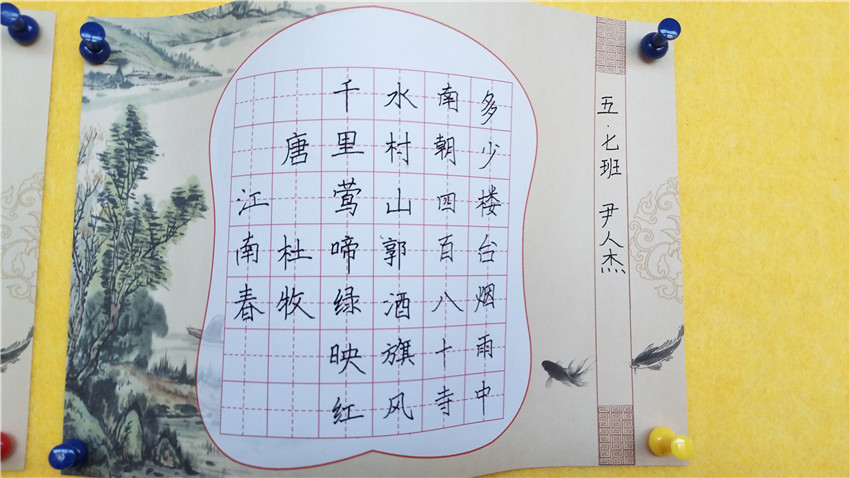 江南春
唐 杜牧
千里莺啼绿映红
水村山郭酒旗风
南朝四百八十寺
多少楼台烟雨中
五·七班 尹人杰